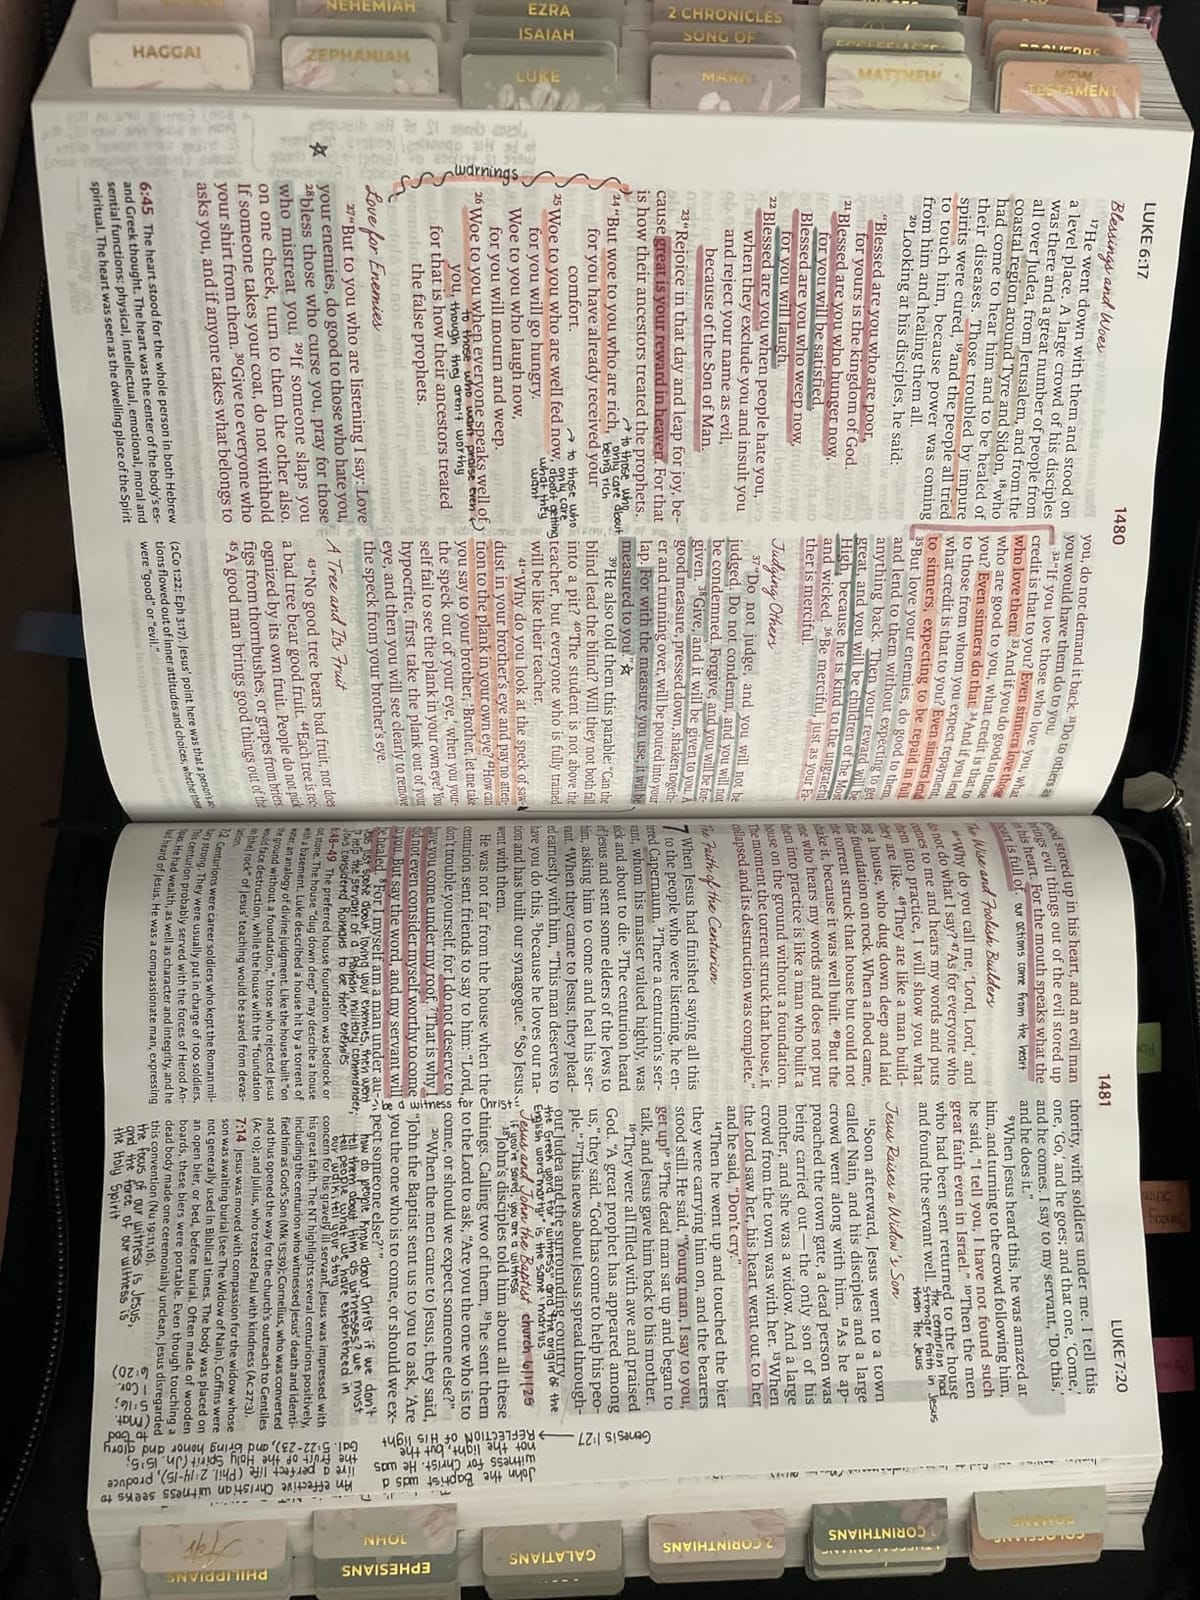 NEHEMIAH
EZRA
2 CHRONICLES
ISAIAH
SONG OF
ECCLESIASTES
PROVERBS
HAGGAI
ZEPHANIAH
LUKE
MARK
MATTHEW
NEW
TESTAMENT
LUKE 6:17
1480
Blessings and Woes
17He went down with them and stood on
a level place. A large crowd of his disciples
was there and a great number of people from
all over Judea, from Jerusalem, and from the
coastal region around Tyre and Sidon, 18who
had come to hear him and to be healed of
their diseases. Those troubled by impure
spirits were cured, 19and the people all tried
to touch him, because power was coming
from him and healing them all.
20Looking at his disciples, he said:
"Blessed are you who are poor,
for yours is the kingdom of God.
21Blessed are you who hunger now,
for you will be satisfied.
Blessed are you who weep now,
for you will laugh.
22Blessed are you when people hate you,
when they exclude you and insult you
and reject your name as evil,
because of the Son of Man.
23"Rejoice in that day and leap for joy, be-
cause great is your reward in heaven. For that
is how their ancestors treated the prophets.
24"But woe to you who are rich,
→ to those who
only care about
being rich
for you have already received your
comfort.
25Woe to you who are well fed now,
→ to those who
only care
about getting
what they
want
for you will go hungry.
Woe to you who laugh now,
for you will mourn and weep.
26Woe to you when everyone speaks well of
you,
to those who want praise even
though they aren't worthy
for that is how their ancestors treated
the false prophets.
warnings
Love for Enemies
27"But to you who are listening I say: Love
your enemies, do good to those who hate you,
28bless those who curse you, pray for those
who mistreat you. 29If someone slaps you
on one cheek, turn to them the other also.
If someone takes your coat, do not withhold
your shirt from them. 30Give to everyone who
asks you, and if anyone takes what belongs to
you, do not demand it back. 31Do to others as
you would have them do to you.
32"If you love those who love you, what
credit is that to you? Even sinners love those
who love them. 33And if you do good to those
who are good to you, what credit is that to
you? Even sinners do that. 34And if you lend
to those from whom you expect repayment,
what credit is that to you? Even sinners lend
to sinners, expecting to be repaid in full.
35But love your enemies, do good to them,
and lend to them without expecting to get
anything back. Then your reward will be
great, and you will be children of the Most
High, because he is kind to the ungrateful
and wicked. 36Be merciful, just as your Fa-
ther is merciful.
Judging Others
37"Do not judge, and you will not be
judged. Do not condemn, and you will not
be condemned. Forgive, and you will be for-
given. 38Give, and it will be given to you. A
good measure, pressed down, shaken togeth-
er and running over, will be poured into your
lap. For with the measure you use, it will be
measured to you."
39He also told them this parable: "Can the
blind lead the blind? Will they not both fall
into a pit? 40The student is not above the
teacher, but everyone who is fully trained
will be like their teacher.
41"Why do you look at the speck of saw-
dust in your brother's eye and pay no atten-
tion to the plank in your own eye? 42How can
you say to your brother, 'Brother, let me take
the speck out of your eye,' when you your-
self fail to see the plank in your own eye? You
hypocrite, first take the plank out of your
eye, and then you will see clearly to remove
the speck from your brother's eye.
A Tree and Its Fruit
43"No good tree bears bad fruit, nor does
a bad tree bear good fruit. 44Each tree is rec-
ognized by its own fruit. People do not pick
figs from thornbushes, or grapes from briers.
45A good man brings good things out of the
6:45 The heart stood for the whole person in both Hebrew
and Greek thought. The heart was the center of the body's es-
sential functions: physical, intellectual, emotional, moral and
spiritual. The heart was seen as the dwelling place of the Spirit
(2Co 1:22; Eph 3:17). Jesus' point here was that a person's ac-
tions flowed out of inner attitudes and choices, whether they
were "good" or "evil."
1481
LUKE 7:20
good stored up in his heart, and an evil man
brings evil things out of the evil stored up
in his heart. For the mouth speaks what the
heart is full of.
our actions come from the heart
The Wise and Foolish Builders
46"Why do you call me, 'Lord, Lord,' and
do not do what I say? 47As for everyone who
comes to me and hears my words and puts
them into practice, I will show you what
they are like. 48They are like a man build-
ing a house, who dug down deep and laid
the foundation on rock. When a flood came,
the torrent struck that house but could not
shake it, because it was well built. 49But the
one who hears my words and does not put
them into practice is like a man who built a
house on the ground without a foundation.
The moment the torrent struck that house, it
collapsed and its destruction was complete."
The Faith of the Centurion
7 When Jesus had finished saying all this
to the people who were listening, he en-
tered Capernaum. 2There a centurion's ser-
vant, whom his master valued highly, was
sick and about to die. 3The centurion heard
of Jesus and sent some elders of the Jews to
him, asking him to come and heal his ser-
vant. 4When they came to Jesus, they plead-
ed earnestly with him, "This man deserves to
have you do this, 5because he loves our na-
tion and has built our synagogue." 6So Jesus
went with them.
He was not far from the house when the
centurion sent friends to say to him: "Lord,
don't trouble yourself, for I do not deserve to
have you come under my roof. 7That is why I
did not even consider myself worthy to come
to you. But say the word, and my servant will
be healed. 8For I myself am a man under au-
thority, with soldiers under me. I tell this
one, 'Go,' and he goes; and that one, 'Come,'
and he comes. I say to my servant, 'Do this,'
and he does it."
9When Jesus heard this, he was amazed at
him, and turning to the crowd following him,
he said, "I tell you, I have not found such
great faith even in Israel." 10Then the men
who had been sent returned to the house
and found the servant well.
the centurian had
stronger faith in Jesus
than the Jews
Jesus Raises a Widow's Son
11Soon afterward, Jesus went to a town
called Nain, and his disciples and a large
crowd went along with him. 12As he ap-
proached the town gate, a dead person was
being carried out—the only son of his
mother, and she was a widow. And a large
crowd from the town was with her. 13When
the Lord saw her, his heart went out to her
and he said, "Don't cry."
14Then he went up and touched the bier
they were carrying him on, and the bearers
stood still. He said, "Young man, I say to you,
get up!" 15The dead man sat up and began to
talk, and Jesus gave him back to his mother.
16They were all filled with awe and praised
God. "A great prophet has appeared among
us," they said. "God has come to help his peo-
ple." 17This news about Jesus spread through-
out Judea and the surrounding country.
the Greek word for "witness" and the origin of the
English word "martyr" is the same: martus
Jesus and John the Baptist church 6/1/25
if you're saved, you are a witness
18John's disciples told him about all these
things. Calling two of them, 19he sent them
to the Lord to ask, "Are you the one who is to
come, or should we expect someone else?"
20When the men came to Jesus, they said,
"John the Baptist sent us to you to ask, 'Are
you the one who is to come, or should we ex-
pect someone else?'"
be a witness for Christ
how do people know about Christ if we don't
tell them about Him as witnesses? we must
tell people what we have experienced in
our walk; tell your story
6:48–49 The preferred house foundation was bedrock or
stone. The house "dug down deep" may describe a house
with a basement. Luke described a house hit by a torrent of
water, an analogy of divine judgment. Like the house built "on
the ground without a foundation," those who rejected Jesus
would face destruction, while the house with the "foundation
on [the] rock" of Jesus' teaching would be saved from devas-
7:2 Centurions were career soldiers who kept the Roman mil-
itary strong. They were usually put in charge of 100 soldiers.
This centurion probably served with the forces of Herod An-
tipas. He had wealth, as well as character and integrity, and he
had heard of Jesus. He was a compassionate man, expressing
concern for his gravely ill servant. Jesus was impressed with
his great faith. The NT highlights several centurions positively,
including the centurion who witnessed Jesus' death and identi-
fied him as God's Son (Mk 15:39); Cornelius, who was converted
and thus opened the way for the church's outreach to Gentiles
(Ac 10); and Julius, who treated Paul with kindness (Ac 27:3).
7:14 Jesus was moved with compassion for the widow whose
son was awaiting burial (see The Widow of Nain). Coffins were
not generally used in Biblical times. The body was placed on
an open bier, or bed, before burial. Often made of wooden
boards, these biers were portable. Even though touching a
dead body made one ceremonially unclean, Jesus disregarded
this convention (Nu 19:11,16).
the focus of our witness is Jesus,
and the force of our witness is
the Holy Spirit
Genesis 1:27
John the Baptist was a
witness for Christ; He was
not the light, but the
REFLECTION of His light
An effective Christian witness seeks to
live a perfect life (Phil. 2:14-15), produce
the fruit of the Holy Spirit (Jn. 15:5;
Gal. 5:22-23), and bring honor and glory
to God
(Mat.
5:16;
1 Cor.
6:20)
PHILIPPIANS
EPHESIANS
GALATIANS
2 CORINTHIANS
1 CORINTHIANS
ROMANS
JOHN
Acts